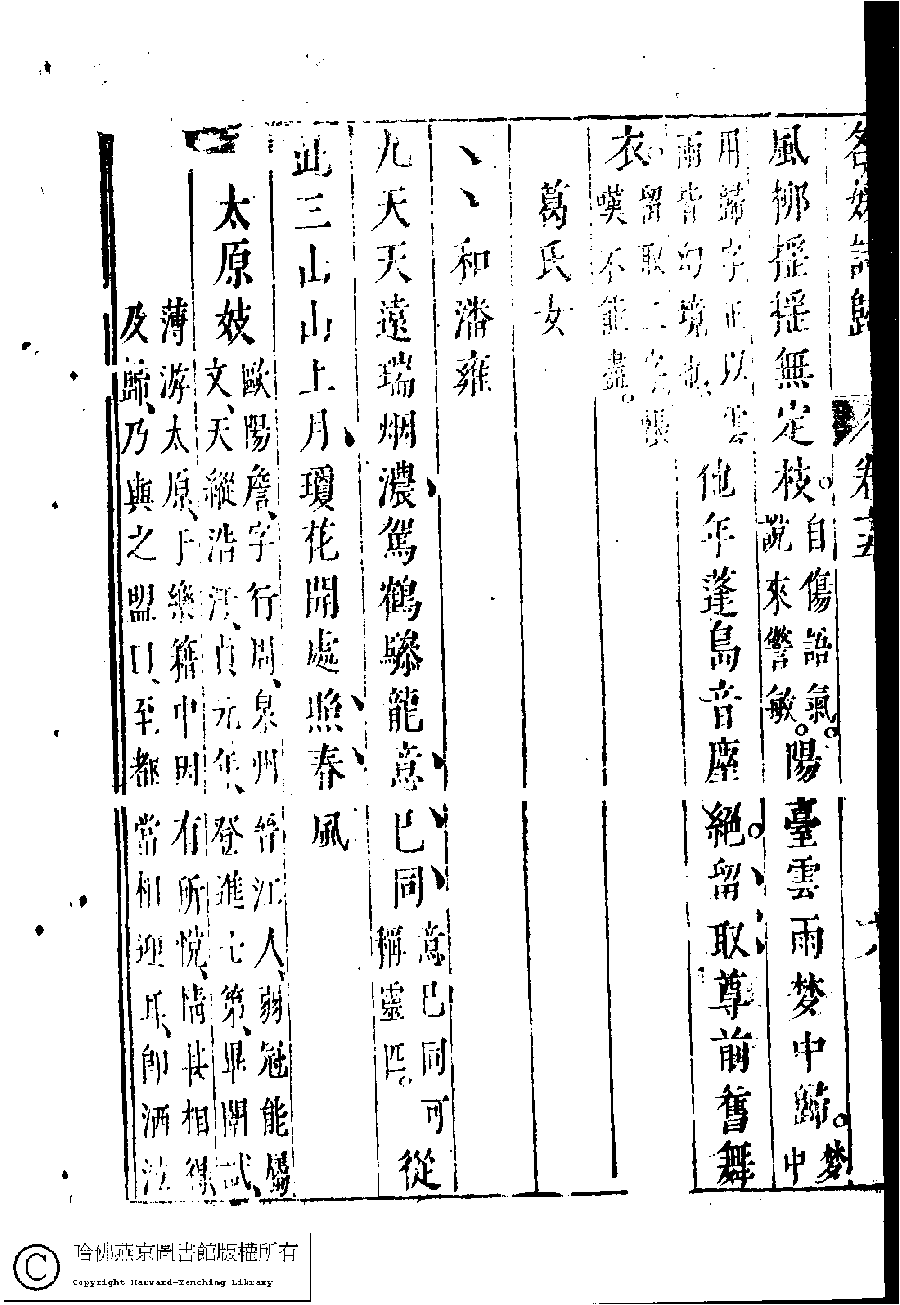 名媛詩歸 卷十五 六
風柳搖搖無定枝。自傷語氣。說來警敏。陽臺雲雨梦中歸。梦中
用歸字正以雲雨皆幻境也、他年蓬島音座絕。留取尊前舊舞
衣。留取二字悵嘆不能盡。
葛氏女
丶丶和潘雍
九天天遠瑞烟濃駕鶴驂龍意已同意已同可稱靈匹。從
此三山山上月瓊花開處照春風
太原妓歐陽詹、字行周、泉州晉江人、弱冠能屬文、天縱浩汗、貞元年、登進士第、畢關試、
薄游太原、于樂籍中因有所悅、情甚相得、及歸、乃與之盟曰、至都當相迎耳、卽洒泣
哈佛燕京圖書館版權所有
Copyright Harvard-Yenching Library